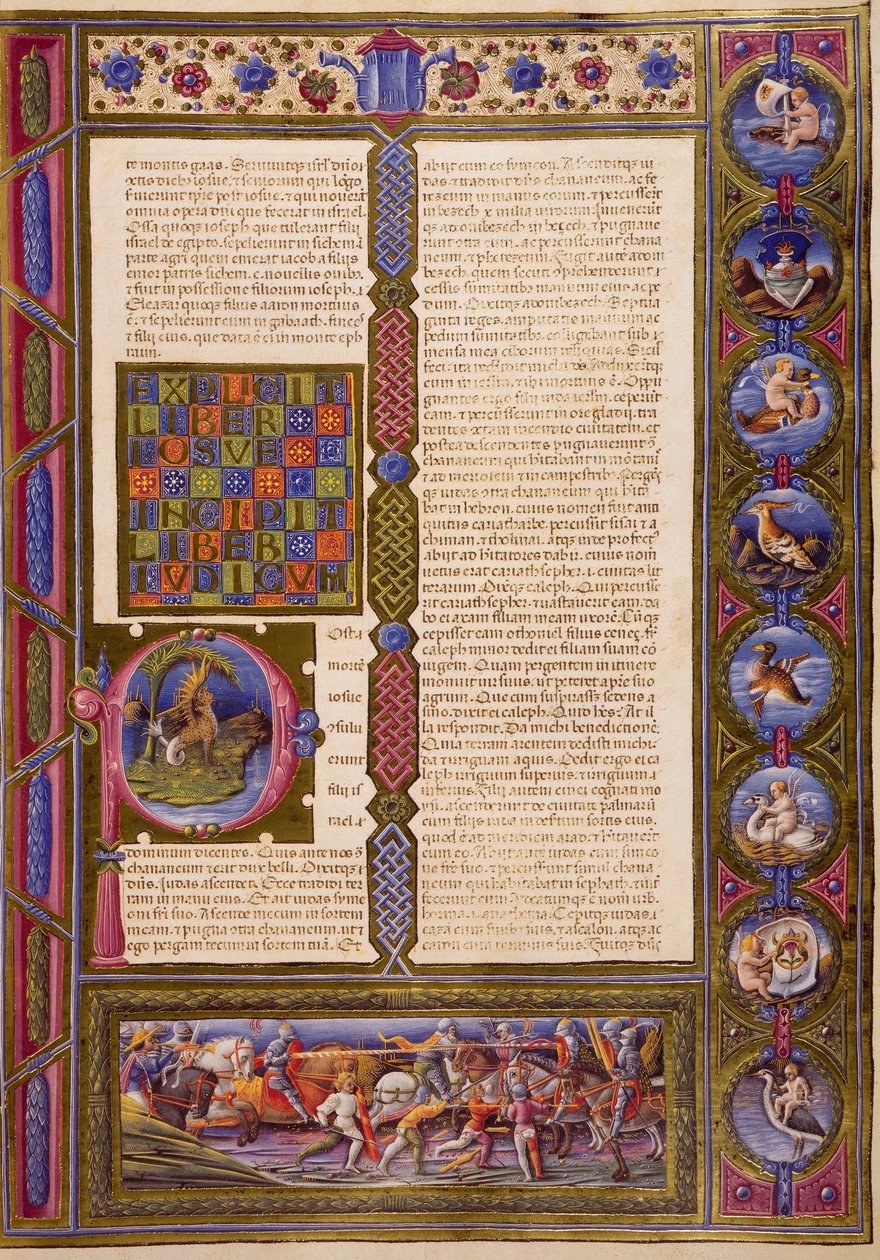 te montis gaas. Servivitqz isrl dño r
xtis dieb iosue. ⁊ seniorum qui lõgo
fuerunt tpre post iosue. ⁊ qui noverãt
omnia opera dni que fecerat in israel.
Ossa quoqz ioseph que tulerant filii
israel de egipto. sepelierunt in sichem ĩ
parte agri quem emerat iacob a filiis
emor patris sichem. c. novellis ovib.
⁊ fuit in possessione filiorum ioseph. ⁊
Eleazar quoqz filius aaron mortuus
ẽ. ⁊ sepelierunt eum in gabaath. finees
⁊ filii eius. que data ẽ ei in monte eph
raim.
EXPLICIT
LIBER
IOSVE
INCIPIT
LIBER
IVDICVM
Post
mortẽ
iosue
ɔsulu
erunt
filii is
rael. ⁊
dominum dicentes. Quis ante nos ɔ
chananeum ⁊ erit dux belli. Dixitqz
dñs. Iudas ascendet. Ecce tradidi ter
ram in manu eius. Et ait iudas syme
oni fri suo. Ascende mecum in sortem
meam. ⁊ pugna ɔtra chananeum. ut ⁊
ego pergam tecum in sortem tuã. Et
abiit cum eo symeon. Ascenditqz iu
das. ⁊ tradidit dñs chananeum. ac fe
rezeum in manus eorum. ⁊ percusserũt
in bezech x milia virorum. Inveneruut
qz adonibezech in bezech. ⁊ pugnave
runt ɔtra eum. ac percusserunt chana
neum. ⁊ pherezeum. Fugit autẽ adoni
bezech. quem secuti ɔprehenderunt ⁊
cessis sumitatib manuum eius ac pe
dum. Dixitqz adonibezech. Septua
ginta reges. amputatis manuum ac
pedum sumitatib. colligebant sub
mensa mea ciborum reliquias. Sicut
feci. ita reddidit michi dñs. Adduxerũtqz
eum in ierlm. ⁊ ibi mortuus ẽ. Oppu
gnantes ergo filii iuda ierlm. ceperũt
eam. ⁊ percusserunt in ore gladii. tra
dentes ⁊ tam incendio civitatem. et
postea descendentes pugnaverunt ɔ
chananeum qui hitabant in montanis
⁊ ad meridiem ⁊ in campestrib. Pergensqz
iudas ɔtra chananeum qui hita
bat in hebron. cuius nomen fuit anti
quitus cariatharbe. percussit sisai ⁊ a
chiman. ⁊ tholmai. atqz inde profectus
abiit ad hitatores dabir. cuius nomẽ
vetus erat cariathsepher. i. civitas lit
terarum. Dixitqz caleph. Qui percusse
rit cariathsepher. ⁊ vastaverit eam. da
bo ei axam filiam meam uxorem. Cũqz
cepisset eam othoniel filius cenez. fr
caleph minor. dedit ei filiam suam cõ
iugem. Quam pergentem in itinere
monuit vir suus. ut peteret a pre suo
agrum. Que cum suspirasset sedens ĩ
asino. dixit ei caleph. Quid hes? At il
la respondit. Da michi benedictionẽ.
Quia terram arentem dedisti michi.
da ⁊ iriguam aquis. Dedit ergo ei ca
leph iriguum superius. ⁊ iriguum
inferius. Filii autem cinei cognati mo
ysi. ascenderunt de civitate palmarũ
cum filiis iuda in desertum sortis eius.
quod ẽ ad meridiem arad. ⁊ hitaverũt
cum eo. Abiit autẽ iudas cum simeo
ne fre suo. ⁊ percusserunt simul chana
neum qui habitabat in sephath. ⁊ inf
fecerunt eum. Vocatumqz ẽ nomẽ urb
horma. i. anathema. Cepitqz iudas
gazã cum finib suis. ⁊ ascalon. atqz ac
caron cum terminis suis. Fuitqz dñs